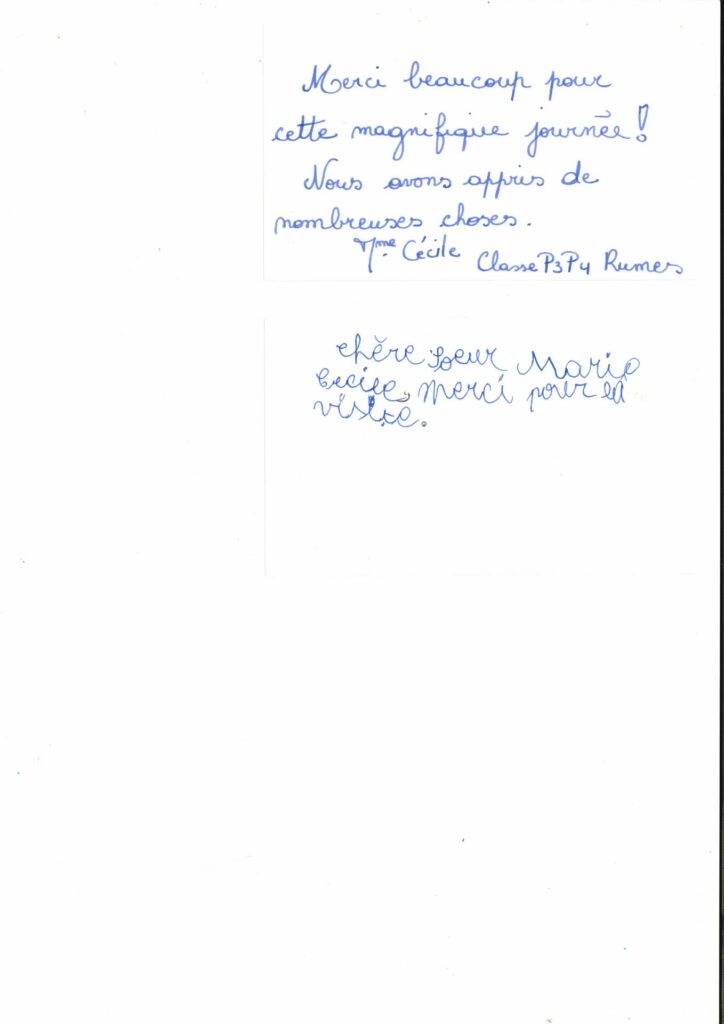 Merci beaucoup pour
cette magnifique journée !
Nous avons appris de
nombreuses choses.
Mme Cécile Classe P3P4 Rumes
chère soeur Marie
Cecile, merci pour la
visite.